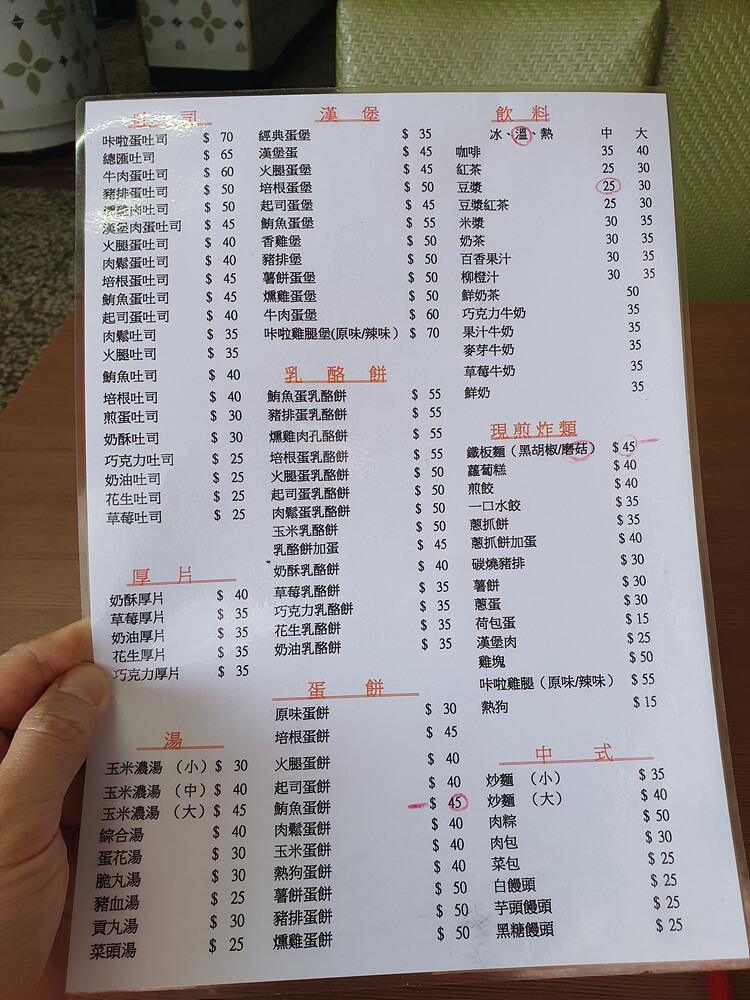 吐司
咔啦蛋吐司 $ 70
總匯吐司 $ 65
牛肉蛋吐司 $ 60
豬排蛋吐司 $ 50
燻雞肉吐司 $ 50
漢堡肉蛋吐司 $ 45
火腿蛋吐司 $ 40
肉鬆蛋吐司 $ 40
培根蛋吐司 $ 45
鮪魚蛋吐司 $ 45
起司蛋吐司 $ 40
肉鬆吐司 $ 35
火腿吐司 $ 35
鮪魚吐司 $ 40
培根吐司 $ 40
煎蛋吐司 $ 30
奶酥吐司 $ 30
巧克力吐司 $ 25
奶油吐司 $ 25
花生吐司 $ 25
草莓吐司 $ 25
厚片
奶酥厚片 $ 40
草莓厚片 $ 35
奶油厚片 $ 35
花生厚片 $ 35
巧克力厚片 $ 35
湯
玉米濃湯 （小） $ 30
玉米濃湯 （中） $ 40
玉米濃湯 （大） $ 45
綜合湯 $ 40
蛋花湯 $ 30
脆丸湯 $ 30
豬血湯 $ 25
貢丸湯 $ 30
菜頭湯 $ 25
漢堡
經典蛋堡 $ 35
漢堡蛋 $ 45
火腿蛋堡 $ 45
培根蛋堡 $ 50
起司蛋堡 $ 45
鮪魚蛋堡 $ 55
香雞堡 $ 50
豬排堡 $ 50
薯餅蛋堡 $ 50
燻雞蛋堡 $ 50
牛肉蛋堡 $ 60
咔啦雞腿堡(原味/辣味） $ 70
乳酪餅
鮪魚蛋乳酪餅 $ 55
豬排蛋乳酪餅 $ 55
燻雞肉孔酪餅 $ 55
培根蛋乳酪餅 $ 55
火腿蛋乳酪餅 $ 50
起司蛋乳酪餅 $ 50
肉鬆蛋乳酪餅 $ 50
玉米乳酪餅 $ 50
乳酪餅加蛋 $ 45
奶酥乳酪餅 $ 40
草莓乳酪餅 $ 35
巧克力乳酪餅 $ 35
花生乳酪餅 $ 35
奶油乳酪餅 $ 35
蛋餅
原味蛋餅 $ 30
培根蛋餅 $ 45
火腿蛋餅 $ 40
起司蛋餅 $ 40
鮪魚蛋餅 $ 45
肉鬆蛋餅 $ 40
玉米蛋餅 $ 40
熱狗蛋餅 $ 40
薯餅蛋餅 $ 50
豬排蛋餅 $ 50
燻雞蛋餅 $ 50
飲料
冰、溫、熱 中 大
咖啡 35 40
紅茶 25 30
豆漿 25 30
豆漿紅茶 25 30
米漿 30 35
奶茶 30 35
百香果汁 30 35
柳橙汁 30 35
鮮奶茶 50
巧克力牛奶 35
果汁牛奶 35
麥芽牛奶 35
草莓牛奶 35
鮮奶 35
現煎炸類
鐵板麵（黑胡椒/磨菇） $ 45
蘿蔔糕 $ 40
煎餃 $ 40
一口水餃 $ 35
蔥抓餅 $ 35
蔥抓餅加蛋 $ 40
碳燒豬排 $ 30
薯餅 $ 30
蔥蛋 $ 30
荷包蛋 $ 15
漢堡肉 $ 25
雞塊 $ 50
咔啦雞腿（原味/辣味） $ 55
熱狗 $ 15
中式
炒麵 （小） $ 35
炒麵 （大） $ 40
肉粽 $ 50
肉包 $ 30
菜包 $ 25
白饅頭 $ 25
芋頭饅頭 $ 25
黑糖饅頭 $ 25